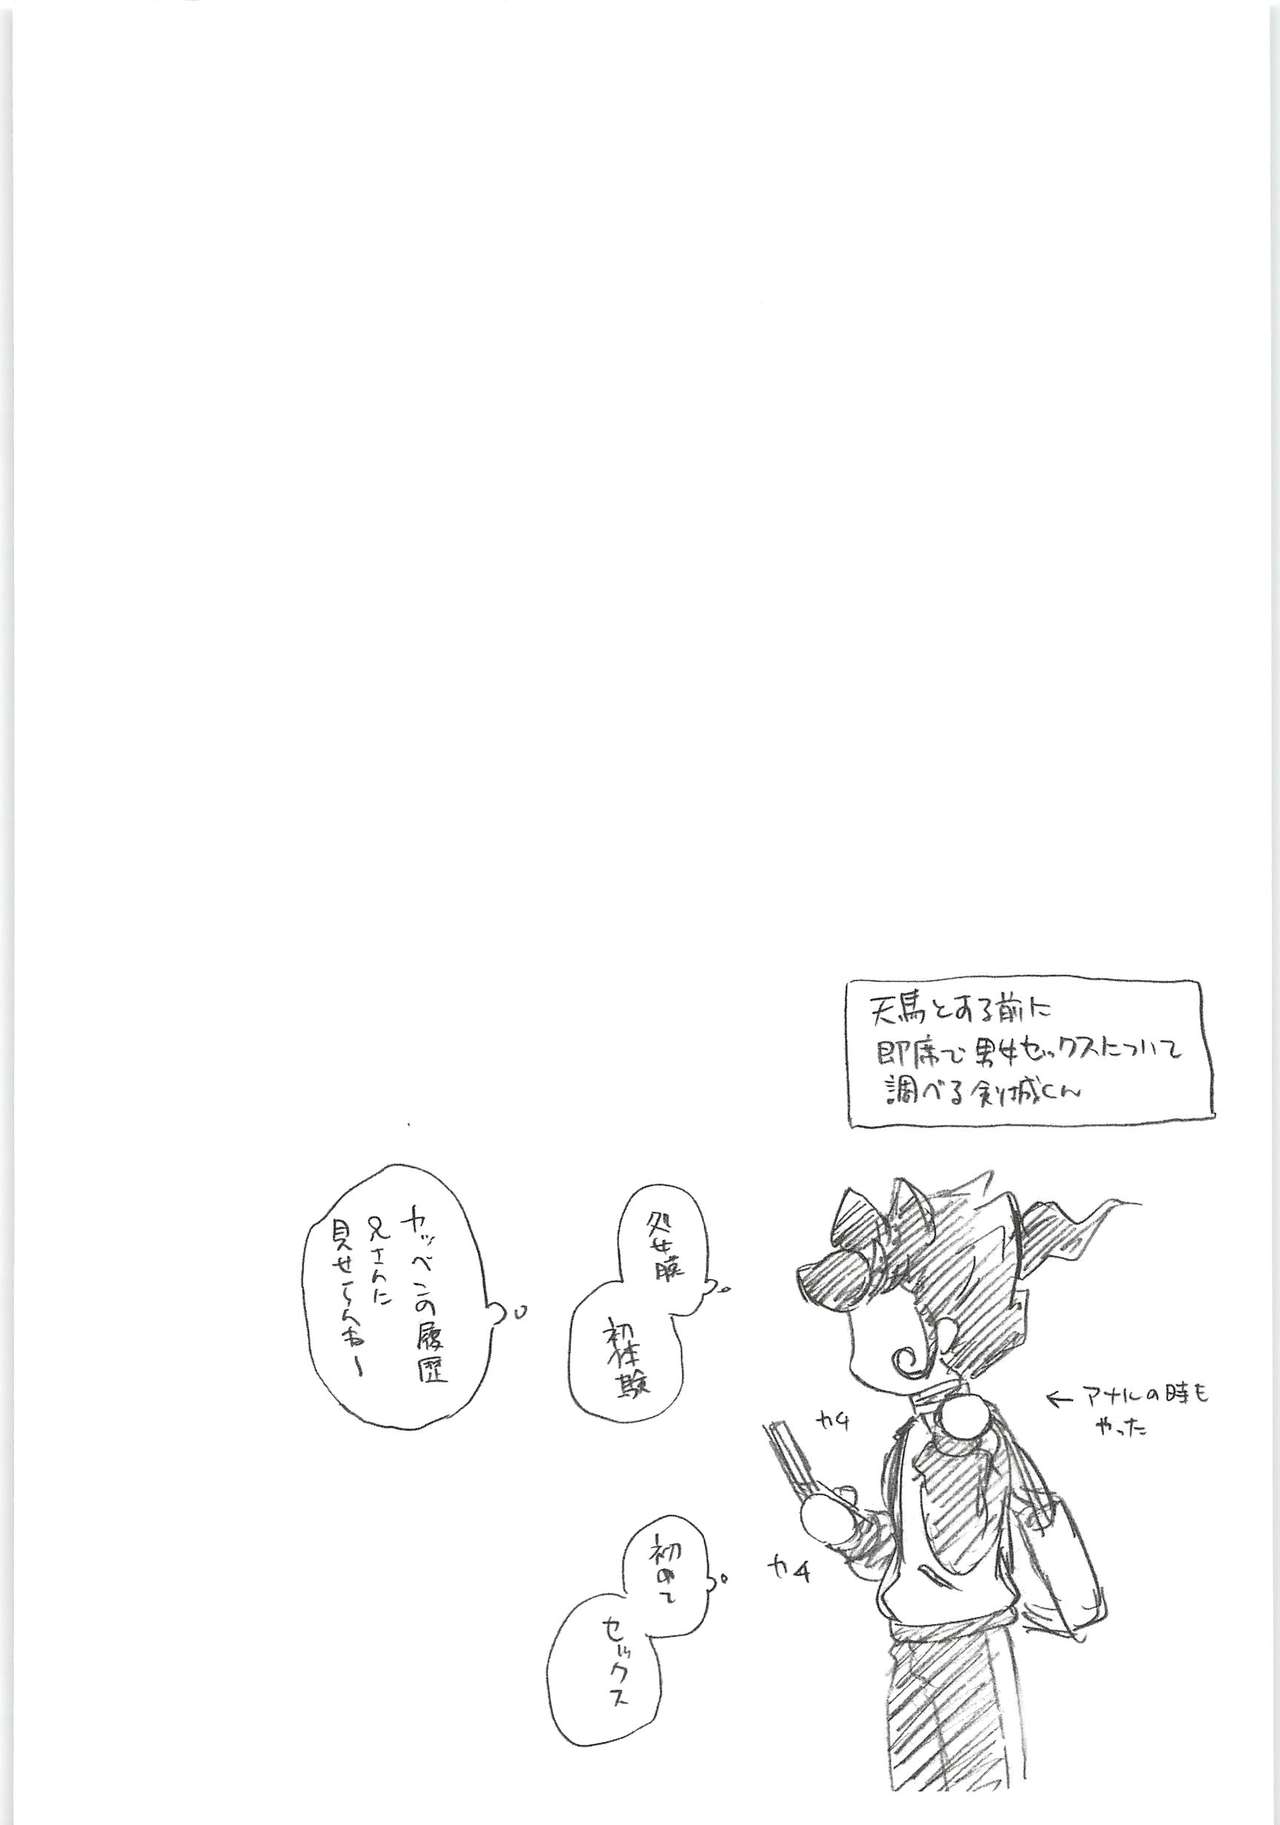 天馬とする前に
即席で男女セックスについて
調べる剣城くん
← アナルの時も
やった
カチ
カチ
処女膜
初体験
初めて
セックス
の履歴
兄さんに